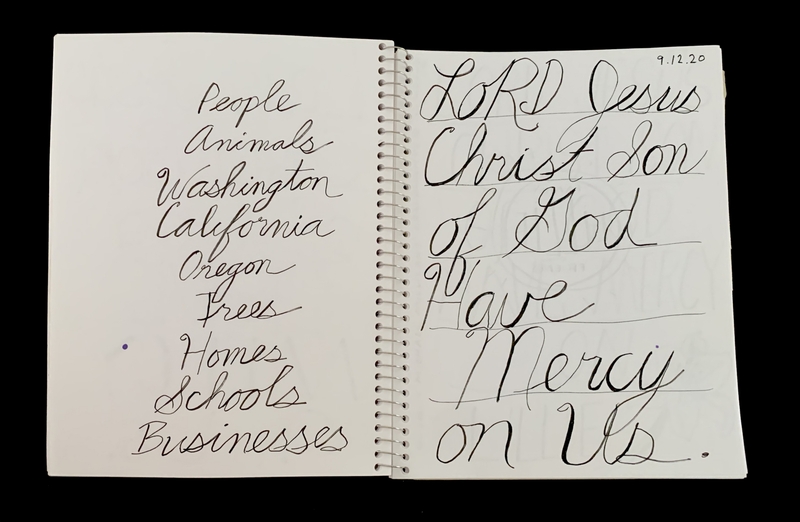 People
Animals
Washington
California
Oregon
Trees
Homes
Schools
Businesses
9.12.20
LORD Jesus
Christ Son
of God
Have
Mercy
on Us.